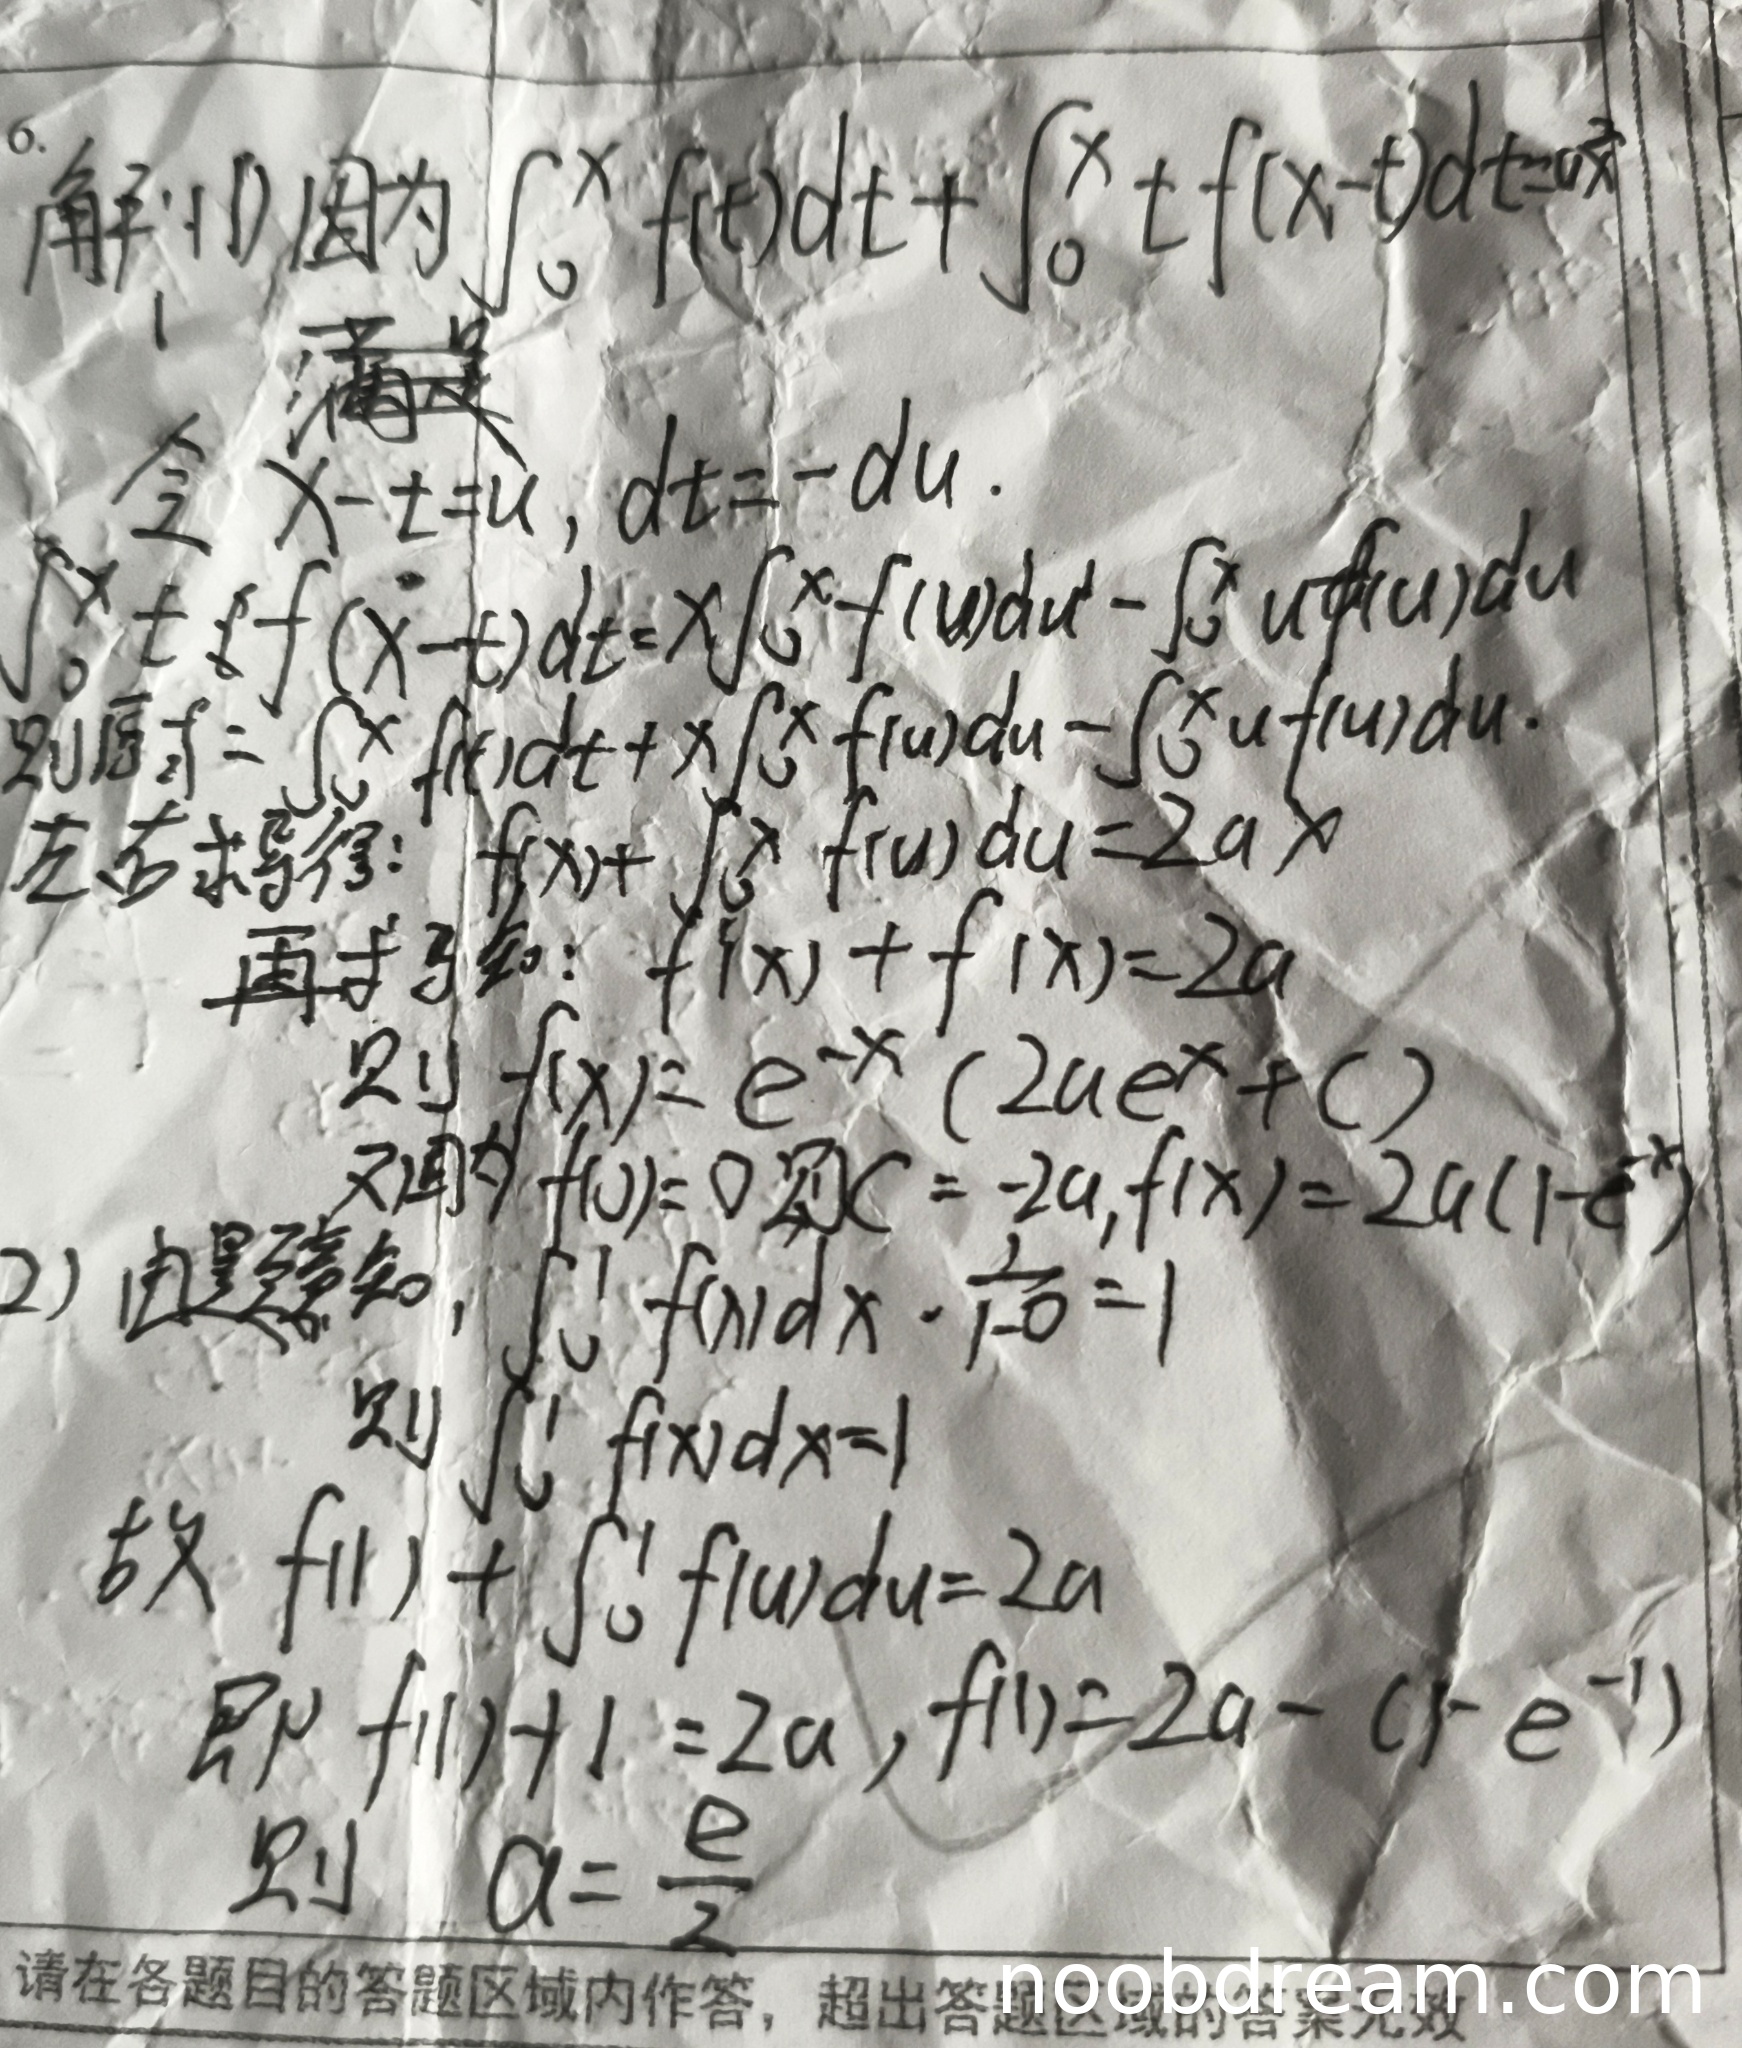 6.
解:(1)因为∫₀ˣ f(t)dt+∫₀ˣ t f(x-t)dt=ax²
令 x-t=u, dt=-du.
∫₀ˣ t f(x-t)dt=x∫₀ˣ f(u)du-∫₀ˣ u f(u)du
则原式=∫₀ˣ f(t)dt+x∫₀ˣ f(u)du-∫₀ˣ u f(u)du.
左右求导得: f(x)+∫₀ˣ f(u)du=2ax
再求导知: f'(x)+f(x)=2a
则 f(x)=e⁻ˣ(2aeˣ+C)
又因为 f(0)=0 则C=-2a, f(x)=2a(1-e⁻ˣ)
2) 由题意知, ∫₀¹ f(x)dx·1/(1-0)=1
则∫₀¹ f(x)dx=1
故 f(1)+∫₀¹ f(u)du=2a
即 f(1)+1=2a, f(1)=2a-(1-e⁻¹)
则 a=e/2
请在各题目的答题区域内作答，超出答题区域的答案无效
noobdream.com